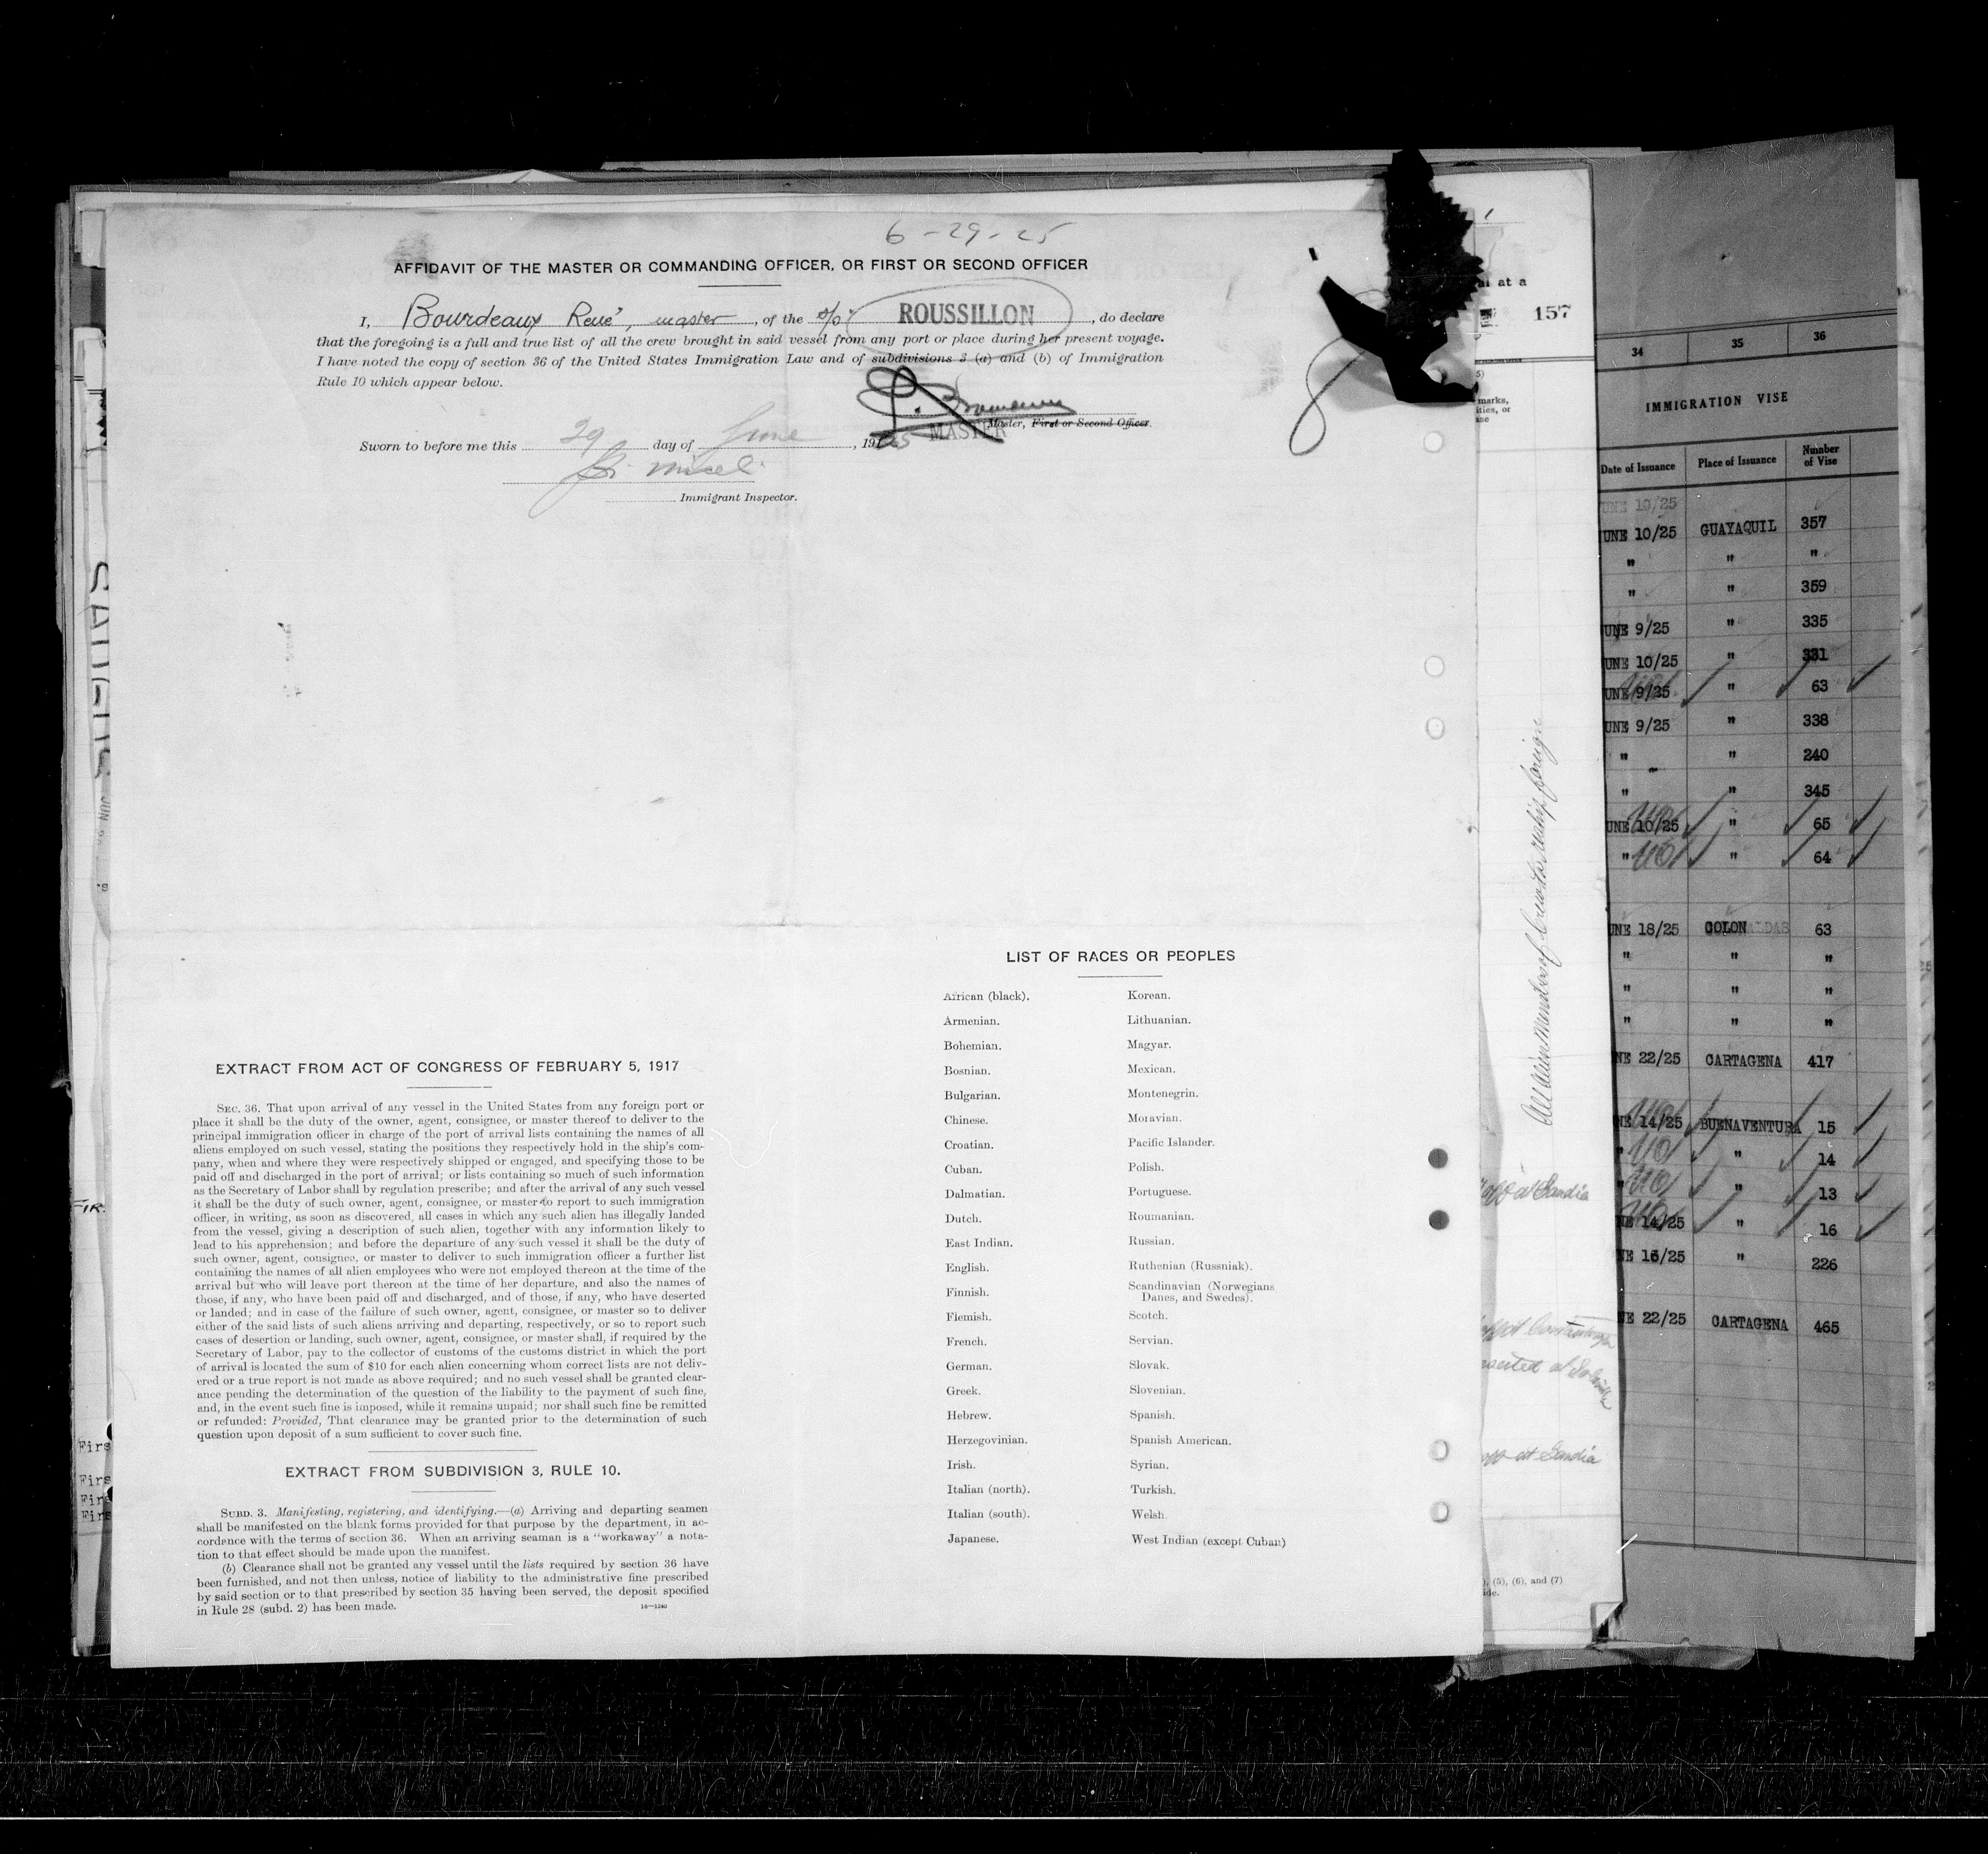 6-29-25
AFFIDAVIT OF THE MASTER OR COMMANDING OFFICER, OR FIRST OR SECOND OFFICER
I, Bourdeaux René, master, of the s/s ROUSSILLON, do declare
that the foregoing is a full and true list of all the crew brought in said vessel from any port or place during her present voyage.
I have noted the copy of section 36 of the United States Immigration Law and of subdivisions 3 (a) and (b) of Immigration
Rule 10 which appear below.
MASTER
Master, First or Second Officer.
Sworn to before me this 29 day of June, 1925
Immigrant Inspector.
8
EXTRACT FROM ACT OF CONGRESS OF FEBRUARY 5, 1917
SEC. 36. That upon arrival of any vessel in the United States from any foreign port or
place it shall be the duty of the owner, agent, consignee, or master thereof to deliver to the
principal immigration officer in charge of the port of arrival lists containing the names of all
aliens employed on such vessel, stating the positions they respectively hold in the ship's com-
pany, when and where they were respectively shipped or engaged, and specifying those to be
paid off and discharged in the port of arrival; or lists containing so much of such information
as the Secretary of Labor shall by regulation prescribe; and after the arrival of any such vessel
it shall be the duty of such owner, agent, consignee, or master to report to such immigration
officer, in writing, as soon as discovered, all cases in which any such alien has illegally landed
from the vessel, giving a description of such alien, together with any information likely to
lead to his apprehension; and before the departure of any such vessel it shall be the duty of
such owner, agent, consignee, or master to deliver to such immigration officer a further list
containing the names of all alien employees who were not employed thereon at the time of the
arrival but who will leave port thereon at the time of her departure, and also the names of
those, if any, who have been paid off and discharged, and of those, if any, who have deserted
or landed; and in case of the failure of such owner, agent, consignee, or master so to deliver
either of the said lists of such aliens arriving and departing, respectively, or so to report such
cases of desertion or landing, such owner, agent, consignee, or master shall, if required by the
Secretary of Labor, pay to the collector of customs of the customs district in which the port
of arrival is located the sum of $10 for each alien concerning whom correct lists are not deliv-
ered or a true report is not made as above required; and no such vessel shall be granted clear-
ance pending the determination of the question of the liability to the payment of such fine,
and, in the event such fine is imposed, while it remains unpaid; nor shall such fine be remitted
or refunded: Provided, That clearance may be granted prior to the determination of such
question upon deposit of a sum sufficient to cover such fine.
EXTRACT FROM SUBDIVISION 3, RULE 10.
SUBD. 3. Manifesting, registering, and identifying.—(a) Arriving and departing seamen
shall be manifested on the blank forms provided for that purpose by the department, in ac-
cordence with the terms of section 36. When an arriving seaman is a "workaway" a nota-
tion to that effect should be made upon the manifest.
(b) Clearance shall not be granted any vessel until the lists required by section 36 have
been furnished, and not then unless, notice of liability to the administrative fine prescribed
by said section or to that prescribed by section 35 having been served, the deposit specified
in Rule 28 (subd. 2) has been made.
14—1240
LIST OF RACES OR PEOPLES
African (black). Korean.
Armenian. Lithuanian.
Bohemian. Magyar.
Bosnian. Mexican.
Bulgarian. Montenegrin.
Chinese. Moravian.
Croatian. Pacific Islander.
Cuban. Polish.
Dalmatian. Portuguese.
Dutch. Roumanian.
East Indian. Russian.
English. Ruthenian (Russniak).
Finnish. Scandinavian (Norwegians,
Danes, and Swedes).
Flemish. Scotch.
French. Servian.
German. Slovak.
Greek. Slovenian.
Hebrew. Spanish.
Herzegovinian. Spanish American.
Irish. Syrian.
Italian (north). Turkish.
Italian (south). Welsh.
Japanese. West Indian (except Cuban)
at a
157
marks,
ities, or
, (5), (6), and (7)
Firs
Firs
Firs
Firs
34 35 36
IMMIGRATION VISE
Date of Issuance Place of Issuance Number of Vise
UNE 10/25
UNE 10/25 GUAYAQUIL 357
" " "
" " 359
UNE 9/25 " 335
UNE 10/25 " 331
UNE 9/25 " 63
UNE 9/25 " 338
" " 240
" " 345
UNE 10/25 " 65
" " 64
UNE 18/25 COLON 63
" " "
" " "
" " "
NE 22/25 CARTAGENA 417
NE 14/25 BUENAVENTURA 15
" " 14
" " 13
NE 14/25 " 16
NE 16/25 " 226
NE 22/25 CARTAGENA 465